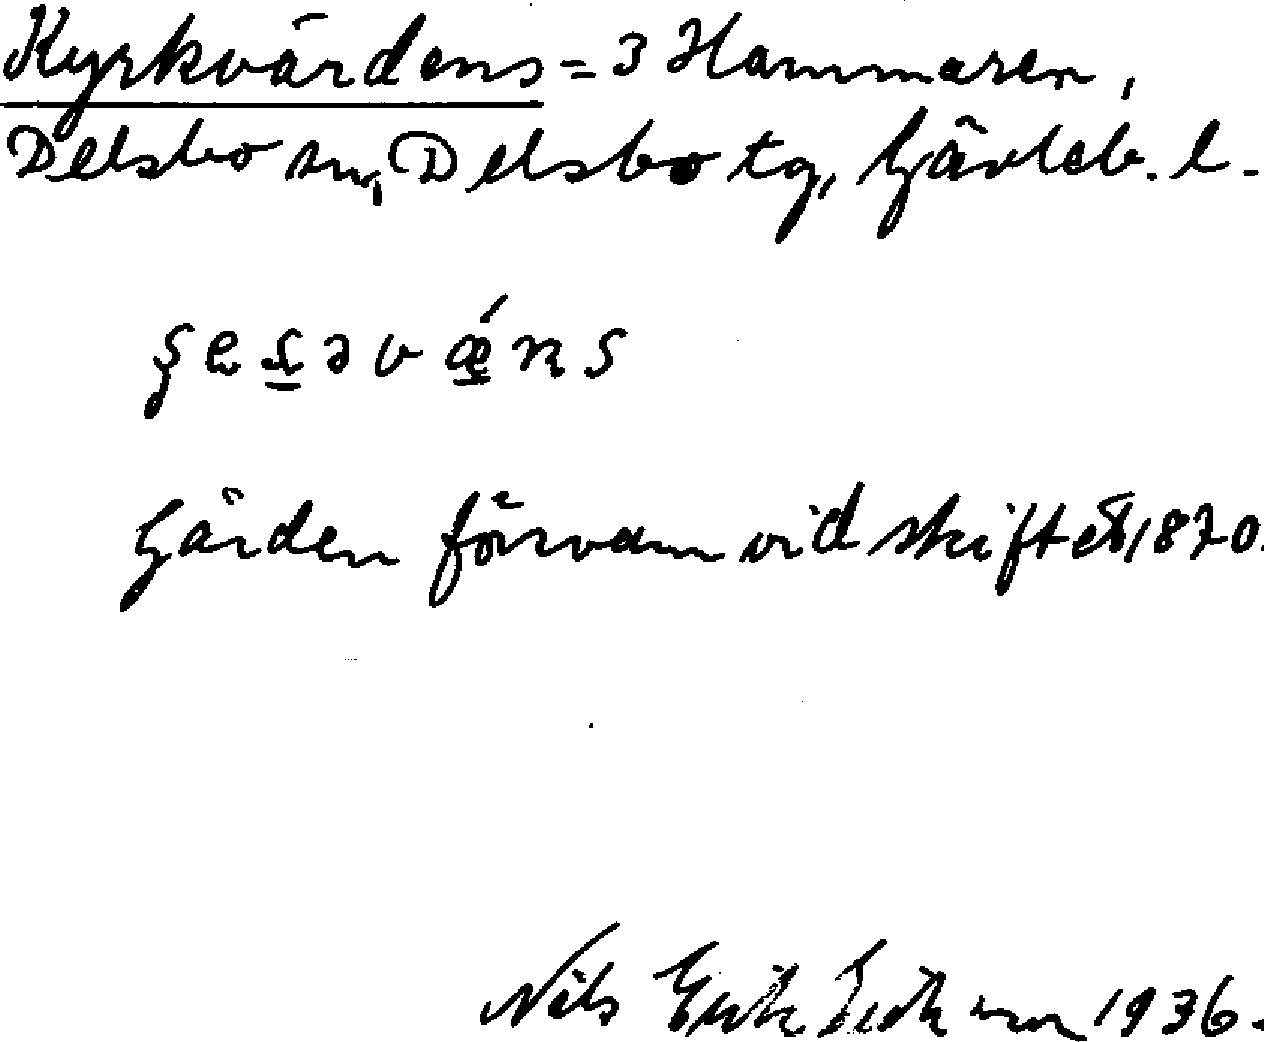 Kyrkvärdens = 3 Hammaren,
Delsbo sn, Delsbo tg, Gävleb. l.
Gården försvann vid skiftet 1870.
Nils Erik 1936.